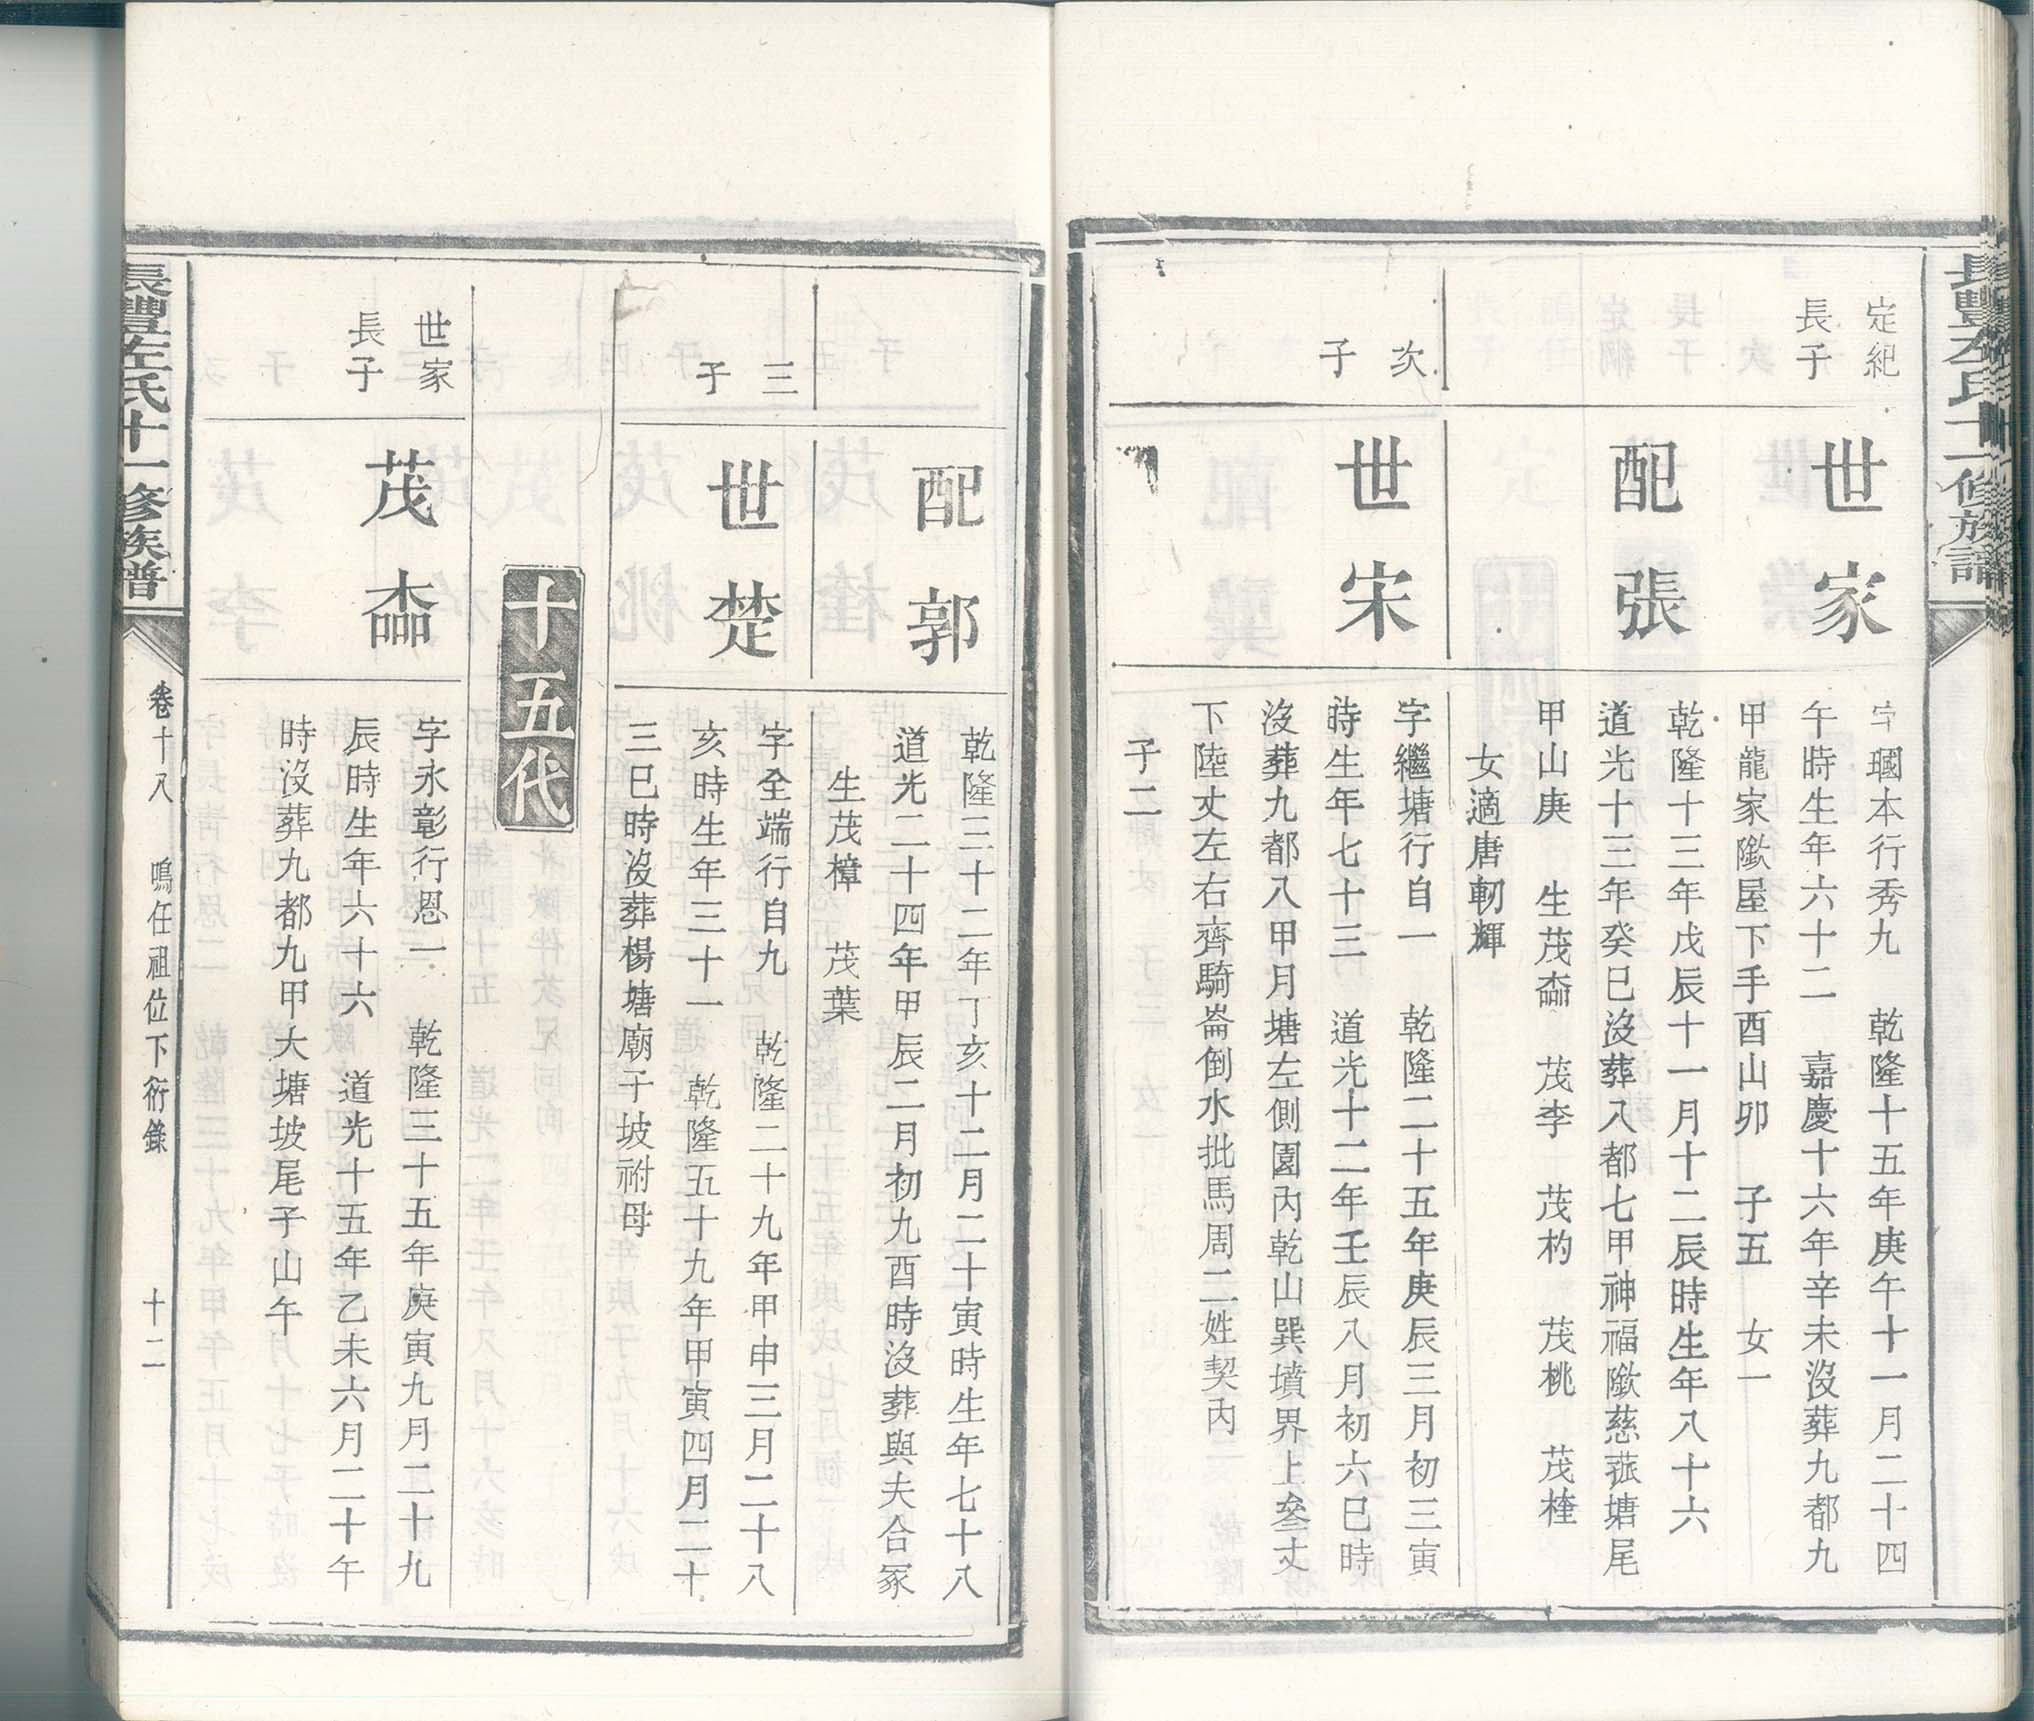 長豐左氏十一修族譜
定紀
長子
世家
字囻本行秀九 乾隆十五年庚午十一月二十四
午時生年六十二 嘉慶十六年辛未沒葬九都九
甲龍家㙍屋下手酉山卯 子五 女一
配張
乾隆十三年戊辰十一月十二辰時生年八十六
道光十三年癸巳沒葬八都七甲神福㙍慈菰塘尾
甲山庚 生茂𣛕 茂李 茂杓 茂桃 茂桂
女適唐軔輝
次
子
世宋
字繼塘行自一 乾隆二十五年庚辰三月初三寅
時生年七十三 道光十二年壬辰八月初六巳時
沒葬九都八甲月塘左側園內乾山巽墳界上叁丈
下陸丈左右齊騎崙倒水批馬周二姓契內
子二
配郭
乾隆三十二年丁亥十二月二十寅時生年七十八
道光二十四年甲辰二月初九酉時沒葬與夫合冢
生茂樟 茂葉
三
子
世楚
字全端行自九 乾隆二十九年甲申三月二十八
亥時生年三十一 乾隆五十九年甲寅四月二十
三巳時沒葬楊塘廟子坡祔母
十五代
世家
長子
茂𣛕
字永彰行恩一 乾隆三十五年庚寅九月二十九
辰時生年六十六 道光十五年乙未六月二十午
時沒葬九都九甲大塘坡尾子山午
長豐左氏十一修族譜
卷十八 鳴任祖位下衍錄 十二